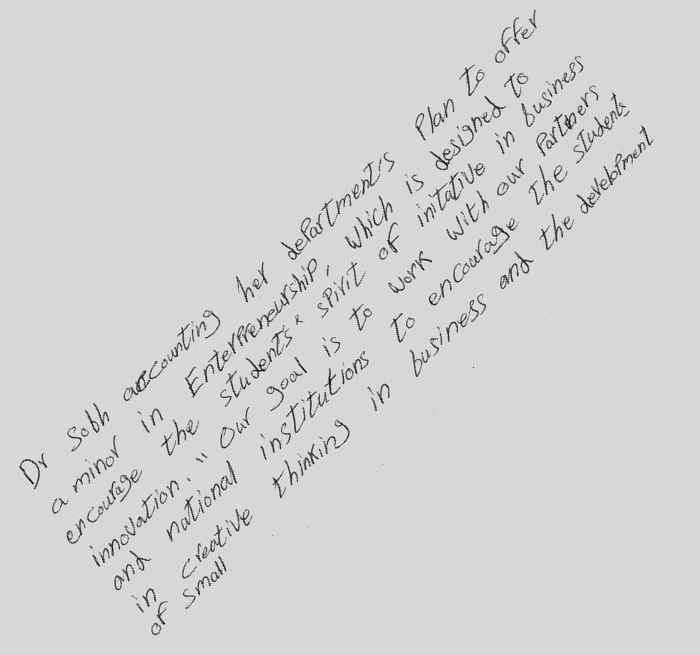 Dr Sobh accounting her department's Plan to offer
a minor in Enterpreneurship, which is designed to
encourage the students' spirit of initative in business
innovation. " Our goal is to work with our Partners
and national institutions to encourage the students
in creative thinking in business and the development
of small